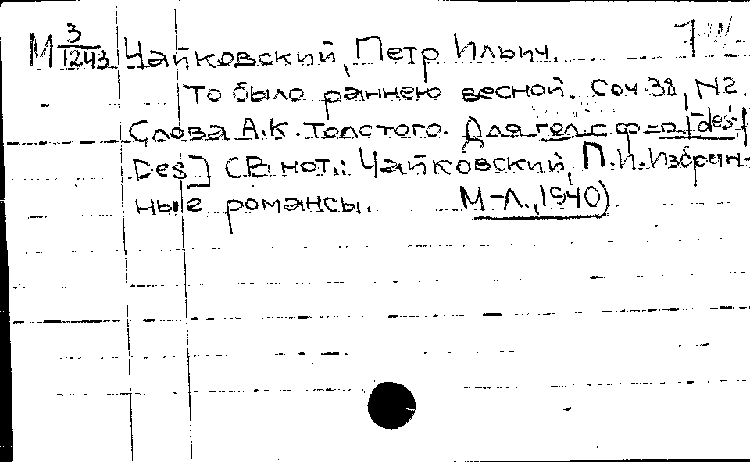 М 3/1243 Чайковский, Петр Ильич.
То было раннею весной. Соч. 38, N2.
Слова А.К. Толстого. Для гол. с ф-п. [des¹-
Des²] (В нот.: Чайковский, П.И. Избран-
ные романсы. М-Л., 1940)